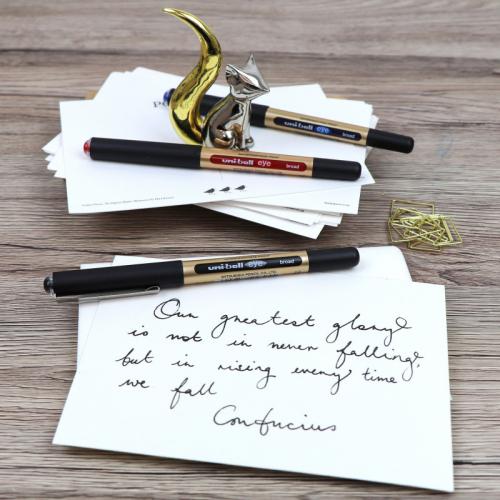 uni-ball eye broad
uni-ball eye broad
uni-ball eye broad
MITSUBISHI PENCIL CO., LTD.
Our greatest glory
is not in never falling,
but in rising every time
we fall
Confucius